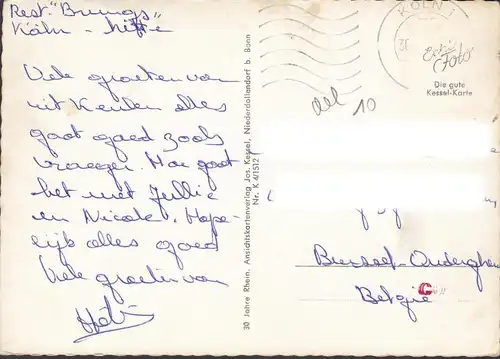 Rest. "Brungs"
Köln - Mitte
Vele groeten van
uit Keulen alles
gaat goed zoals
vroeger. Hoe gaat
het met Jullie
en Nicole. Hope-
lijk alles goed
Vele groeten van
30 Jahre Rhein. Ansichtskartenverlag Jos. Kessel, Niederdollendorf b. Bonn
Nr. K 4/1512
KÖLN
Echt
Foto
Die gute
Kessel-Karte
10
Brussel-Ouderghem
België